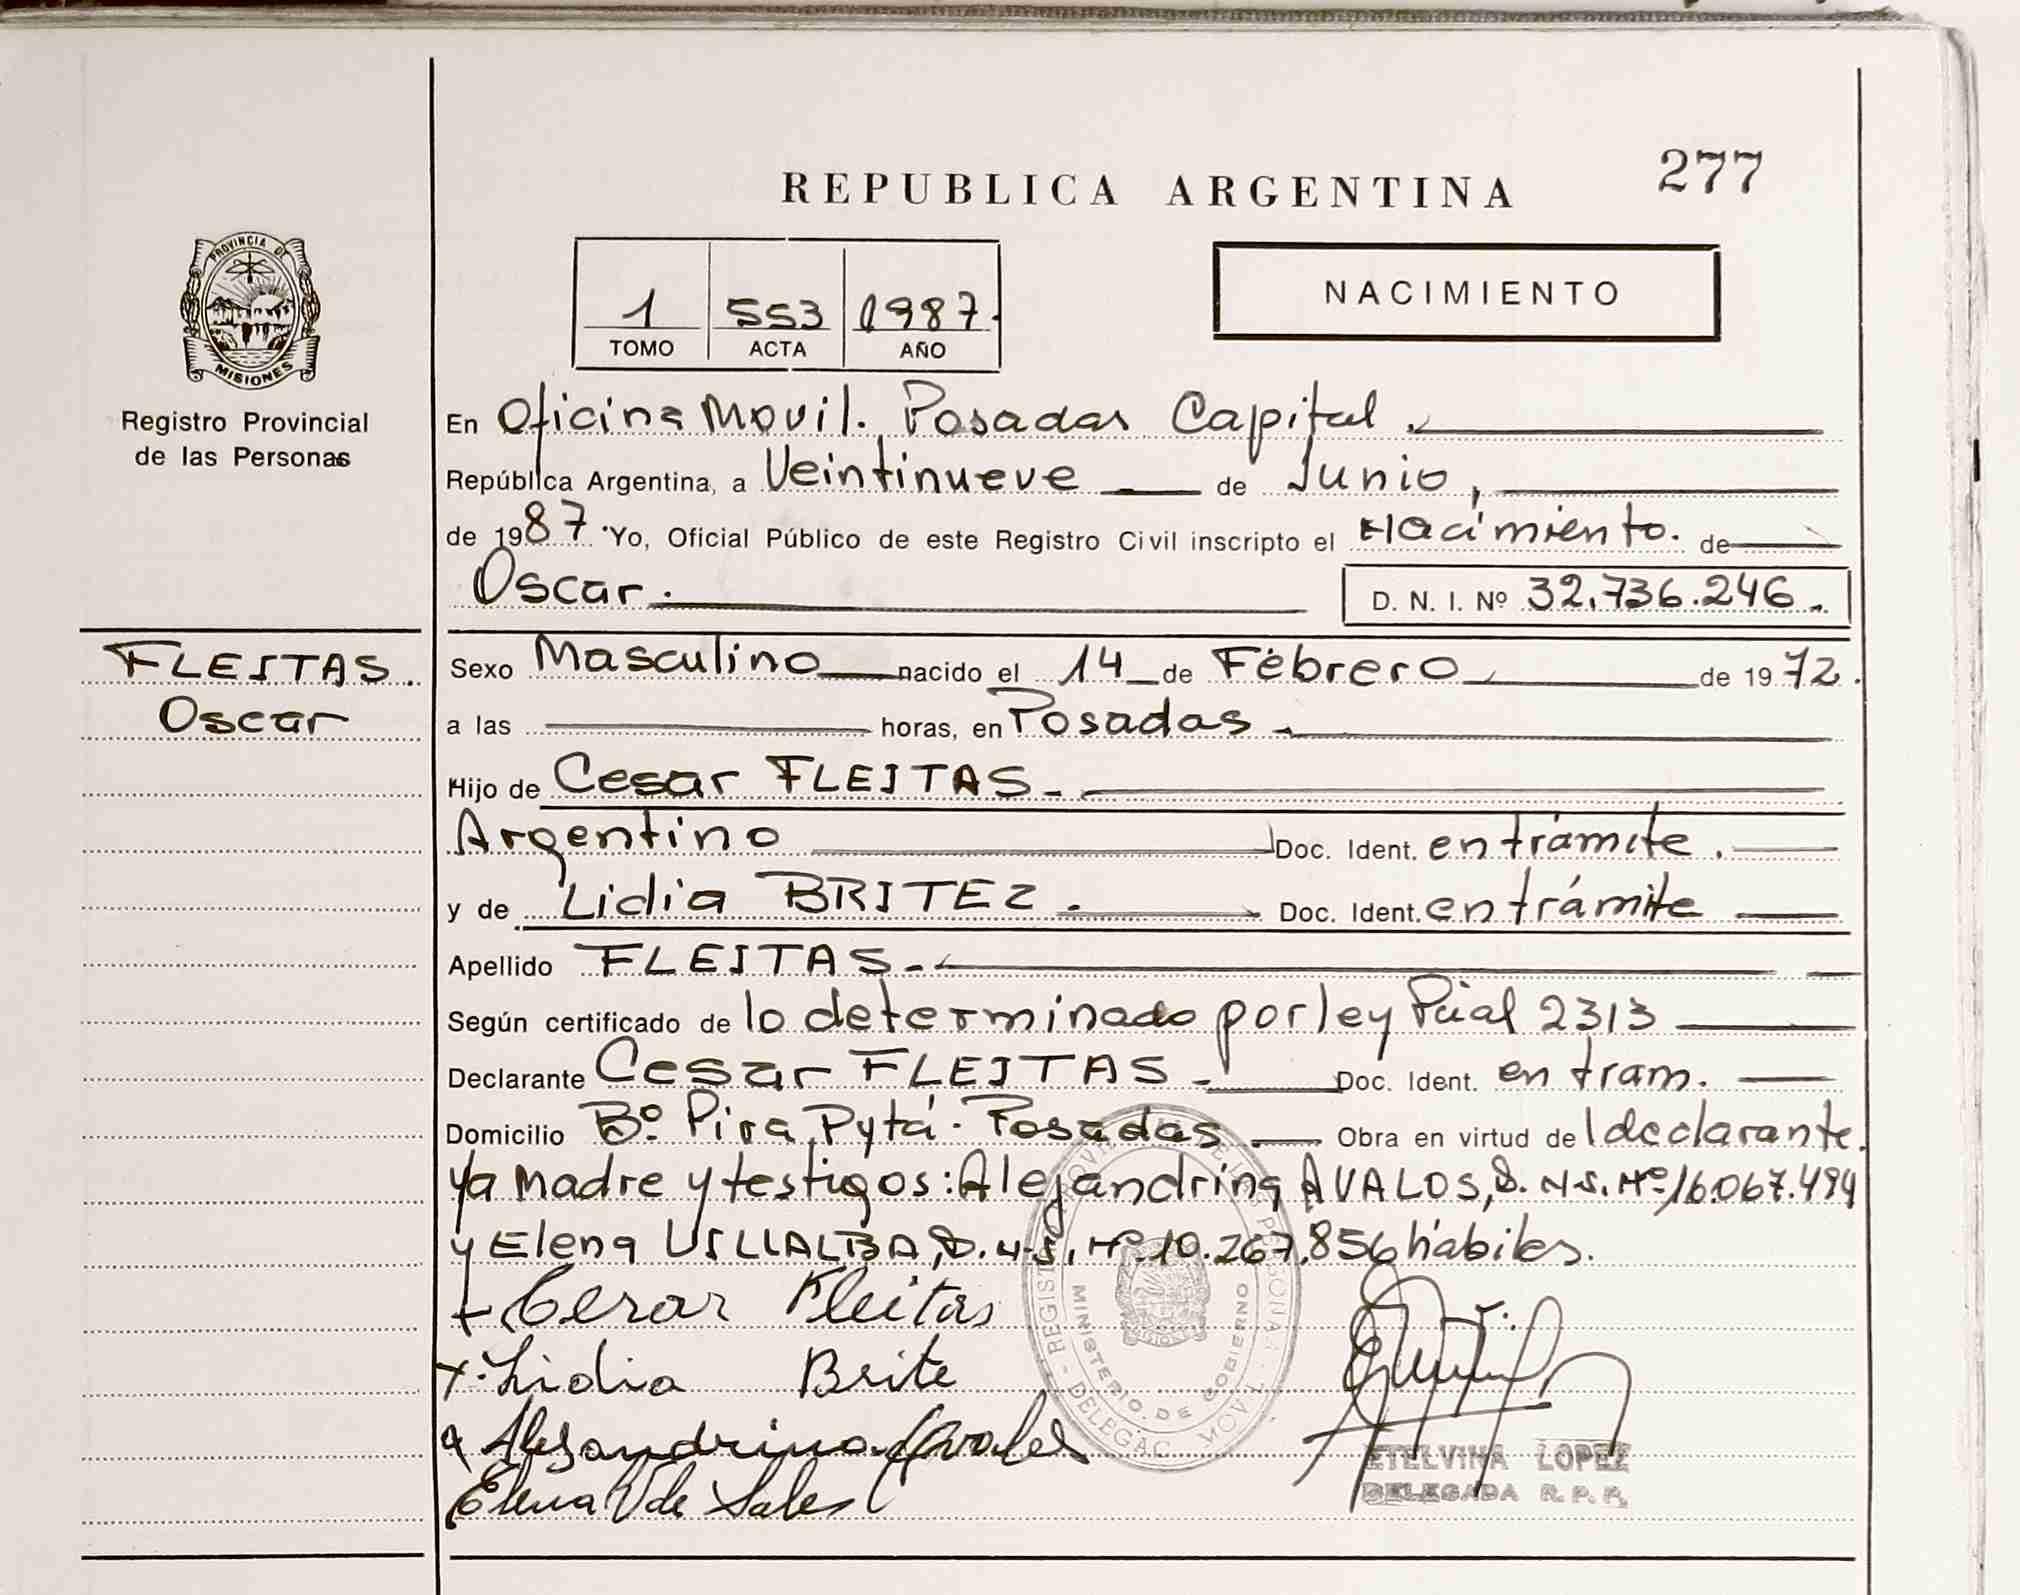 277
REPUBLICA ARGENTINA
PROVINCIA DE
MISIONES
Registro Provincial
de las Personas
1 553 1987.
TOMO ACTA AÑO
NACIMIENTO
En Oficina Movil. Posadas Capital.
República Argentina, a Veintinueve de Junio,
de 1987. Yo, Oficial Público de este Registro Civil inscripto el Nacimiento. de
Oscar. D. N. I. Nº 32.736.246.
FLEITAS.
Oscar
Sexo Masculino nacido el 14 de Febrero de 1972.
a las horas, en Posadas.
Hijo de Cesar FLEITAS.
Argentino Doc. Ident. en trámite.
y de Lidia BRITEZ. Doc. Ident. en trámite
Apellido FLEITAS.
Según certificado de lo determinado por ley Pcial 2313
Declarante Cesar FLEITAS. Doc. Ident. en tram.
Domicilio Bº. Pira Pytá. Posadas Obra en virtud de l declarante.
ya madre y testigos: Alejandrina AVALOS, D.N.I. Nº 16.067.494
y Elena VILLALBA, D.N.I. Nº 10.267.856 hábiles.
Cerar Fleitas
Lidia Brite
Alejandrina Avalos
Elena V de Sales
MINISTERIO DE GOBIERNO
ETELVINA LOPEZ
DELEGADA R. P. P.